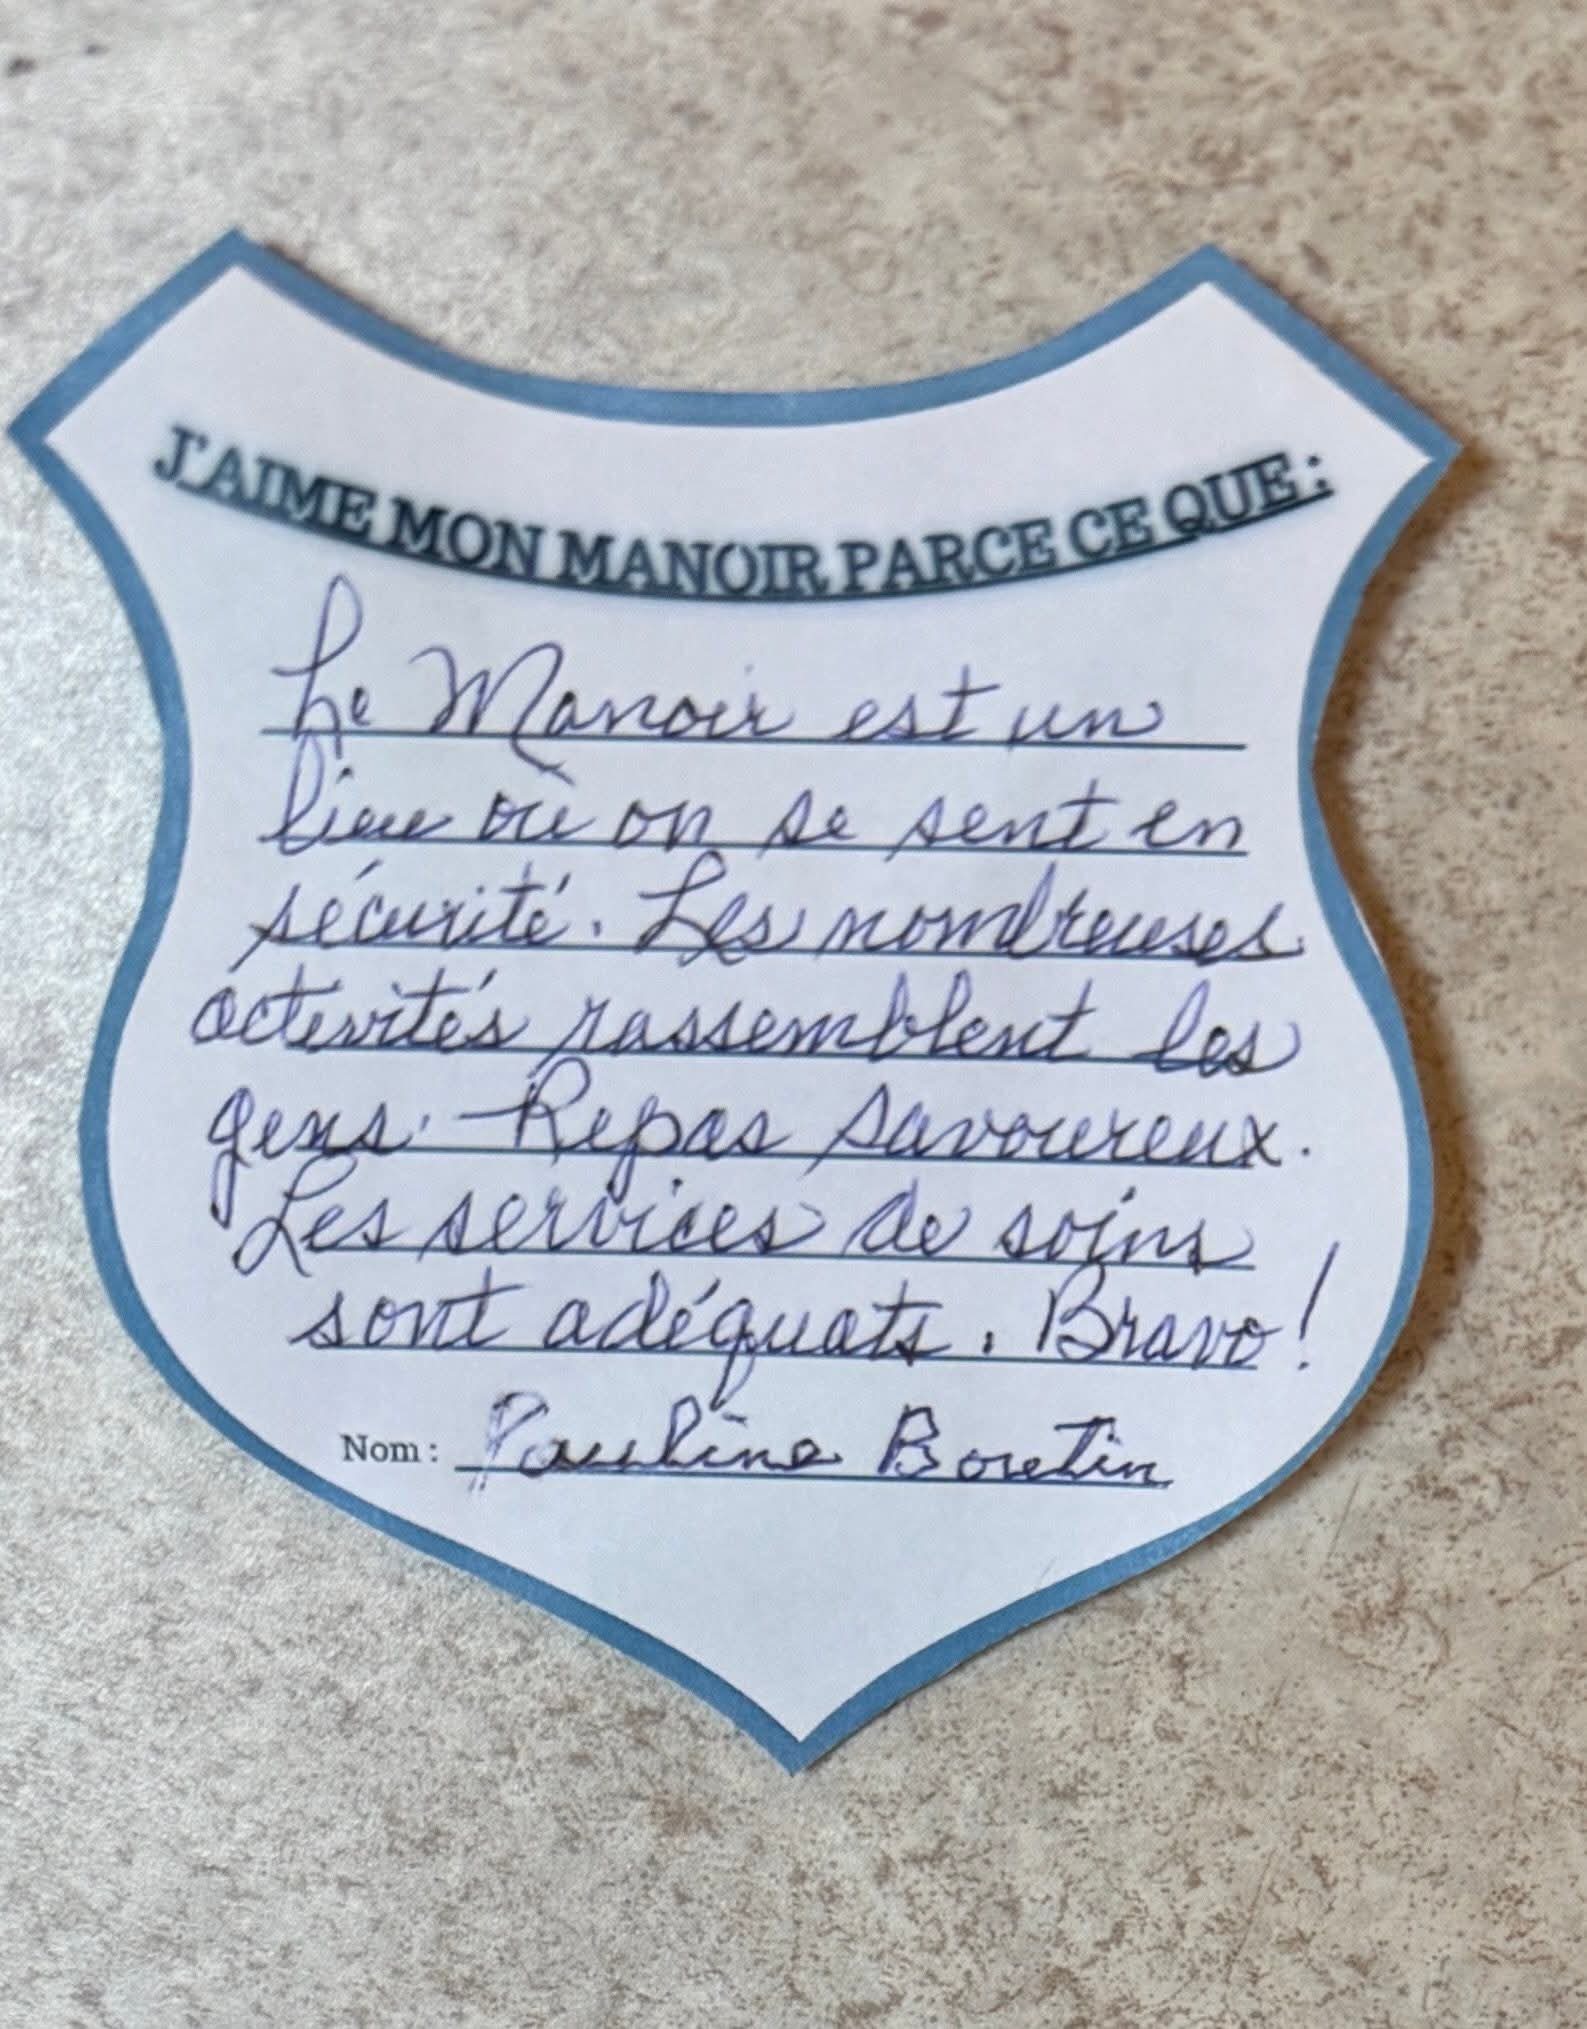 J'AIME MON MANOIR PARCE CE QUE :
Le Manoir est un
lieu où on se sent en
sécurité. Les nombreuses
activités rassemblent les
gens. Repas savoureux.
Les services de soins
sont adéquats. Bravo!
Nom : Pauline Boutin